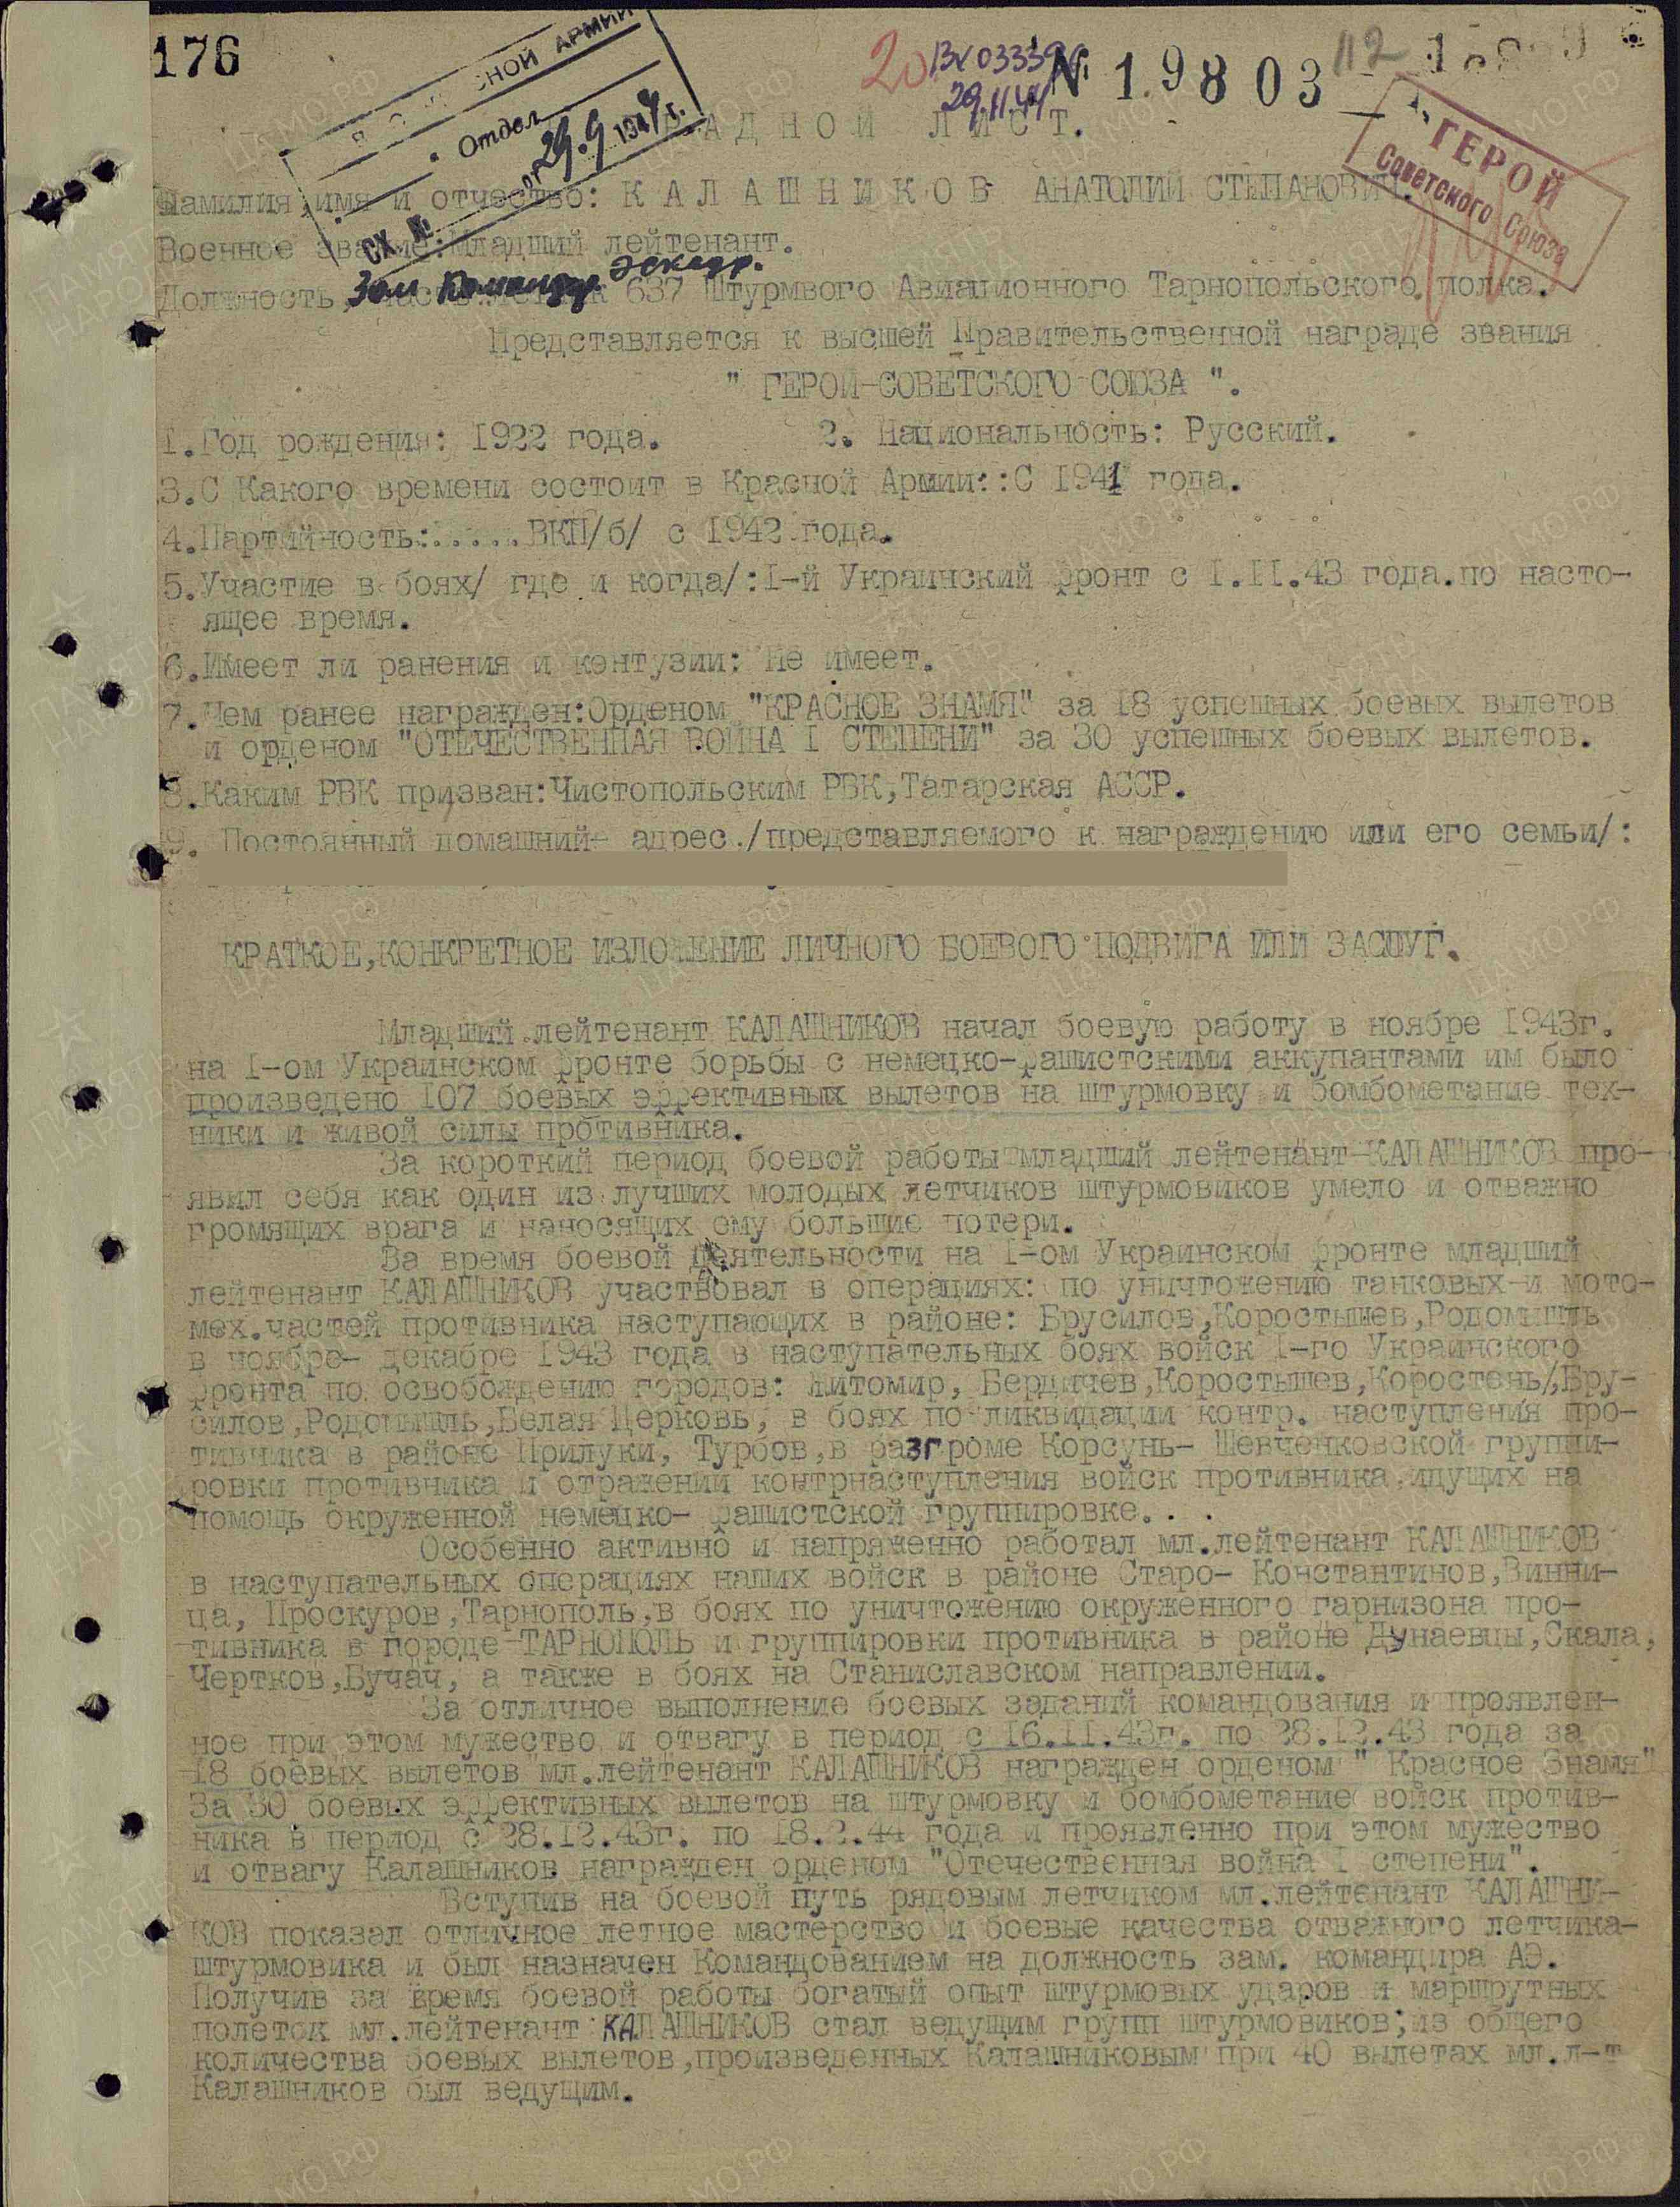 176
20
Вх 03339
29.11.44
№ 19803
112
НОЙ АРМИИ
Отдел
от 29.9 1944 г.
СХ №
ГЕРОЙ
Советского Союза
АДНОЙ ЛИСТ.
Фамилия, имя и отчество: К А Л А Ш Н И К О В АНАТОЛИЙ СТЕПАНОВИЧ.
Военное звание: Младший лейтенант.
Зам командир эскадр.
Должность, 637 Штурмвого Авиационного Тарнопольского полка.
Представляется к высшей Правительственной награде звания
" ГЕРОЙ-СОВЕТСКОГО-СОЮЗА ".
1.Год рождения: 1922 года. 2. Национальность: Русский.
3.С Какого времени состоит в Красной Армии::С 1941 года.
4.Партийность:.....ВКП/б/ с 1942 года.
5.Участие в боях/ где и когда/:I-й Украинский фронт с I.II.43 года.по насто-
ящее время.
6.Имеет ли ранения и контузии: Не имеет.
7.Чем ранее награжден:Орденом "КРАСНОЕ ЗНАМЯ" за 18 успешных боевых вылетов
и орденом "ОТЕЧЕСТВЕННАЯ ВОЙНА I СТЕПЕНИ" за 30 успешных боевых вылетов.
8.Каким РВК призван:Чистопольским РВК,Татарская АССР.
9. Постоянный домашний- адрес./представляемого к награждению или его семьи/:
КРАТКОЕ,КОНКРЕТНОЕ ИЗЛОЖЕНИЕ ЛИЧНОГО БОЕВОГО ПОДВИГА ИЛИ ЗАСЛУГ.
Младший лейтенант КАЛАШНИКОВ начал боевую работу в ноябре 1943г.
на I-ом Украинском фронте борьбы с немецко-фашистскими аккупантами им было
произведено 107 боевых эффективных вылетов на штурмовку и бомбометание тех-
ники и живой силы противника.
За короткий период боевой работы младший лейтенант КАЛАШНИКОВ про-
явил себя как один из лучших молодых летчиков штурмовиков умело и отважно
громящих врага и наносящих ому большие потери.
За время боевой деятельности на I-ом Украинском фронте младший
лейтенант КАЛАШНИКОВ участвовал в операциях: по уничтожению танковых-и мото-
мех.частей противника наступающих в районе: Брусилов,Коростышев,Родомышль
в ноябре- декабре 1943 года в наступательных боях войск I-го Украинского
фронта по освобождению городов: Житомир, Бердичев,Коростышев,Коростень/,Бру-
силов,Родомышль,Белая Церковь, в боях по ликвидации контр. наступления про-
тивника в районе Прилуки, Турбов,в разгроме Корсунь- Шевченковской группи-
ровки противника и отражении контрнаступления войск противника,идущих на
помощь окруженной немецко- фашистской группировке. . .
Особенно активно и напряженно работал мл.лейтенант КАЛАШНИКОВ
в наступательных операциях наших войск в районе Старо- Константинов,Винни-
ца, Проскуров,Тарнополь,в боях по уничтожению окруженного гарнизона про-
тивника в городе ТАРНОПОЛЬ и группировки противника в районе Дунаевцы,Скала,
Чертков,Бучач, а также в боях на Станиславском направлении.
За отличное выполнение боевых заданий командования и проявлен-
ное при этом мужество и отвагу в период с 16.II.43г. по 28.12.43 года за
18 боевых вылетов мл.лейтенант КАЛАШНИКОВ награжден орденом " Красное Знамя"
За 30 боевых эффективных вылетов на штурмовку и бомбометание войск против-
ника в период с 28.12.43г. по 18.2.44 года и проявленно при этом мужество
и отвагу Калашников награжден орденом "Отечественная война I степени".
Вступив на боевой путь рядовым летчиком мл.лейтенант КАЛАШНИ-
КОВ показал отличное летное мастерство и боевые качества отважного летчика-
штурмовика и был назначен Командованием на должность зам. командира АЭ.
Получив за время боевой работы богатый опыт штурмовых ударов и маршрутных
полеток мл.лейтенант КАЛАШНИКОВ стал ведущим групп штурмовиков;из общего
количества боевых вылетов,произведенных Калашниковым при 40 вылетах мл.л-т
Калашников был ведущим.